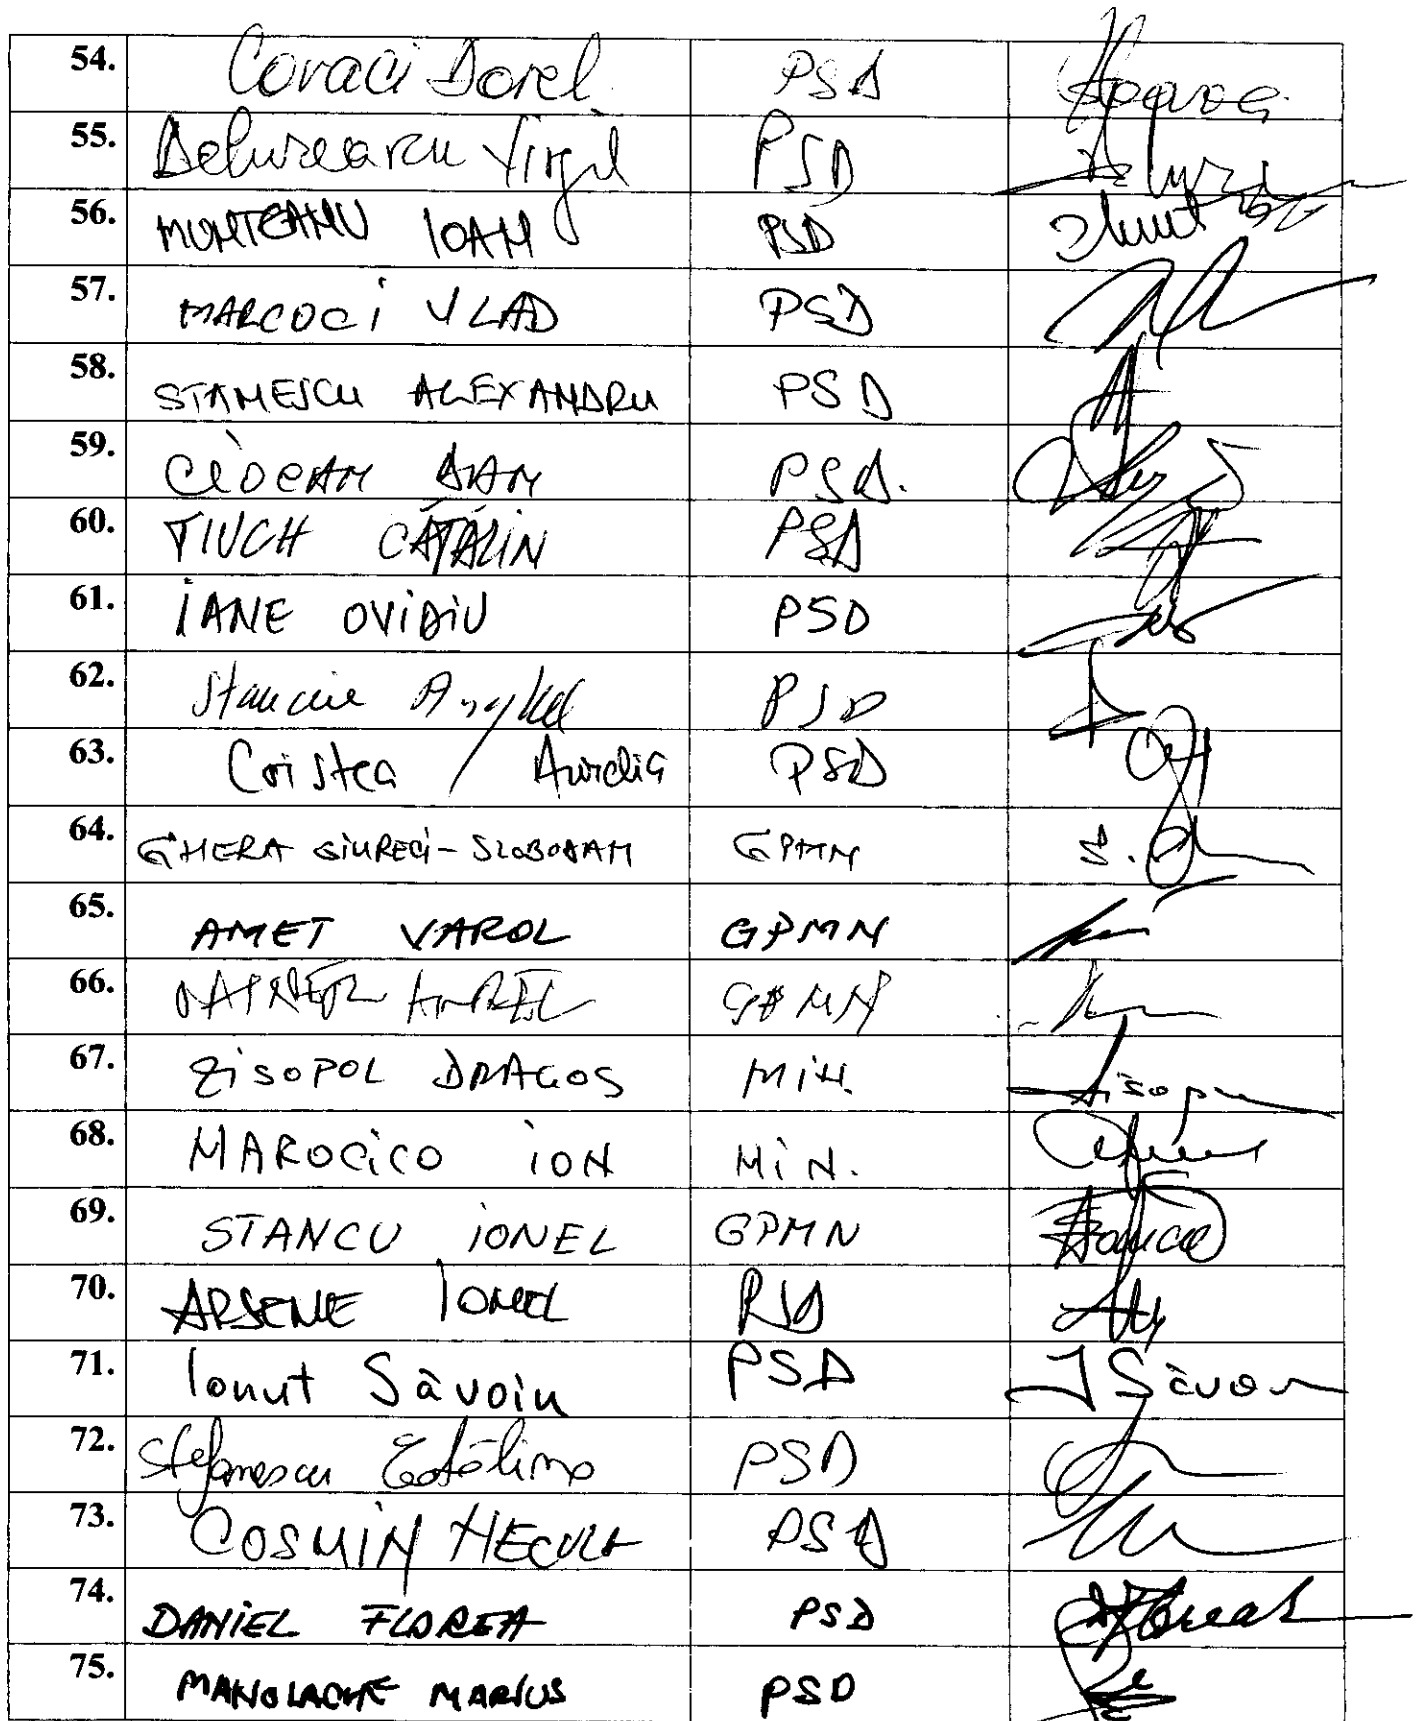 54. Covaci Dorel PSD
55. Delureanu Virgil PSD
56. MUNTEANU IOAN PSD
57. MARCOCI VLAD PSD
58. STANESCU ALEXANDRU PSD
59. CIOCAN DAN PSD.
60. TIUCH CĂTĂLIN PSD
61. IANE OVIDIU PSD
62. Stanciu PSD
63. Cristea Aurelia PSD
64. GHERA GIURECI-SLOBODAN GPMN S.
65. AMET VAROL GPMN
66. GPMN
67. ZISOPOL DRAGOS MIN. Zisopol
68. MAROCICO ION MIN.
69. STANCU IONEL GPMN Stancu
70. ARSENE IONEL PSD
71. Ionut Săvoiu PSD I Săvoiu
72. Stefanescu Cătălina PSD
73. COSMIN NECULA PSD
74. DANIEL FLOREA PSD
75. MANOLACHE MARIUS PSD